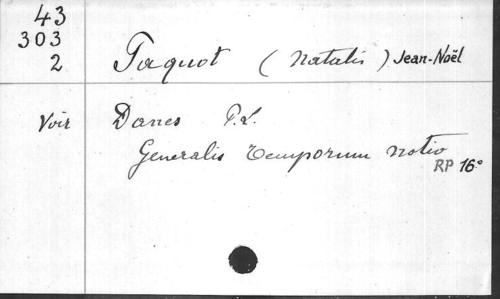 43
303
2
Paquot (Natalis) Jean-Noël
Voir Danes P.L.
Generalis temporum notio
RP 16°